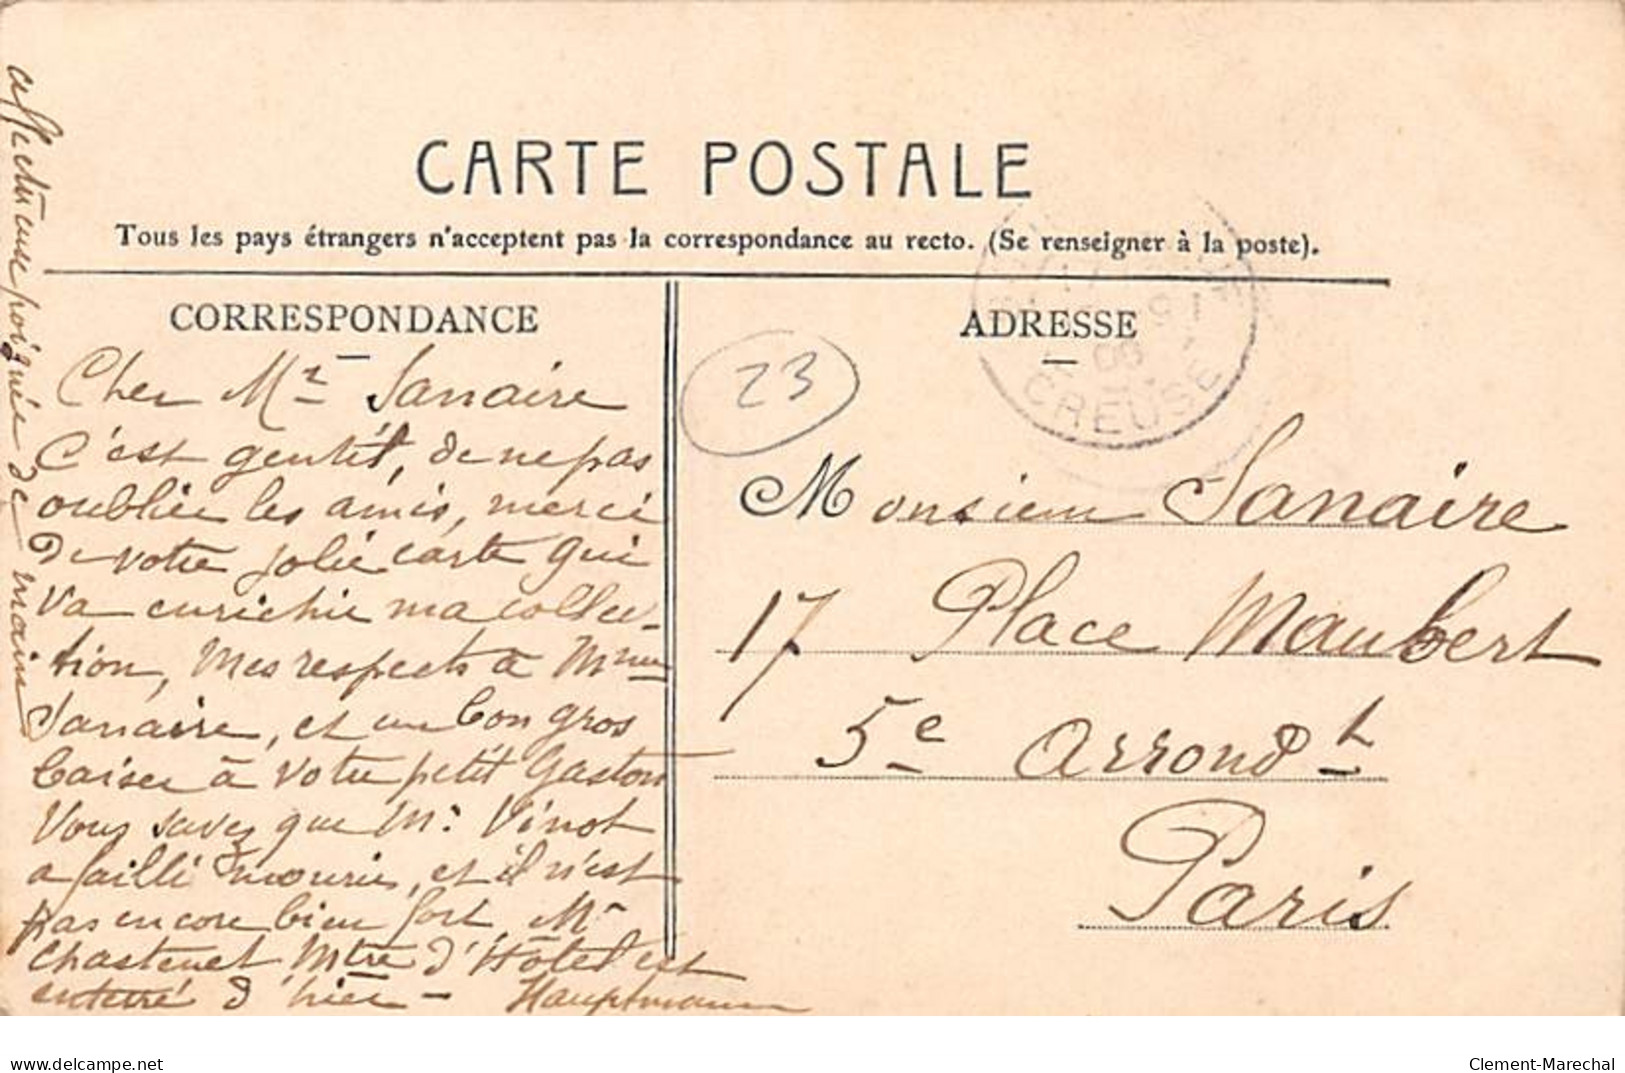 CARTE POSTALE
Tous les pays étrangers n'acceptent pas la correspondance au recto. (Se renseigner à la poste).
CORRESPONDANCE
Cher Mr Sanaire
C'est gentil, de ne pas
oublier les amis, merci
de votre jolie carte qui
va enrichir ma collec-
tion, mes respects à Mme
Sanaire, et un bon gros
baiser à votre petit Gaston
Vous savez que M. Vinot
a failli mourir, et il n'est
pas encore bien fort, Mr
Chastenet Mtre d'Hôtel est
enterré d'hier - Hauptmann
affectueuse poignée de main
23
ADRESSE
CREUSE
Monsieur Sanaire
17 Place Maubert
5e Arrondt
Paris
delcampe.net
Clement-Marechal